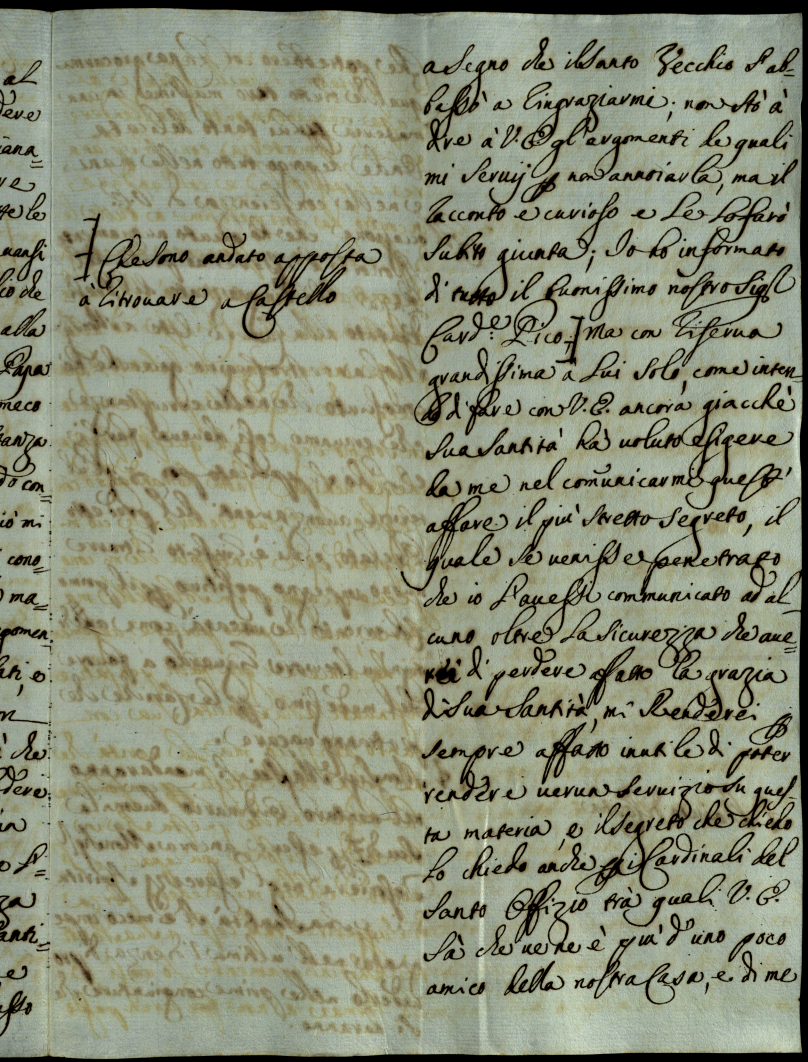 al
dere
iana=
re
tte le
uansi
co che
alla
Papa
meco
tanza
do con=
iò mi
cono=
ma=
gomen
lati, e
che
dere
in
za
Santi=
e
asso
Che sono andato apposta
à ritrouare a Castello
a segno che il Santo Vecchio s'ab=
bassò a ringraziarmi; non stò à
dire à V. E. gl'argomenti de quali
mi seruij p non annoiarla, ma il
racconto è curioso e Le Lo farò
subito giunta; Io hò informato
di tutto il buonissimo nostro Sigr
Card.e Pico, ma con riserua
grandissima à Lui solo, come inten
do di fare con V. E. ancora giacchè
Sua Santità hà uoluto esigere
da me nel comunicarmi quest'
affare il più stretto segreto, il
quale se uenisse penetrato
che io l'auessi communicato ad al=
cuno oltre La sicurezza che aue=
rei di perdere affatto la grazia
di Sua Santità, mi renderei p
sempre affatto inutile di poter
rendere uerun seruizio su ques
ta materia, e il segreto che chiedo
Lo chiedo anche p i Cardinali del
Santo Offizio trà quali V. E.
sà che ue ne è più d'uno poco
amico della nostra Casa, e di me